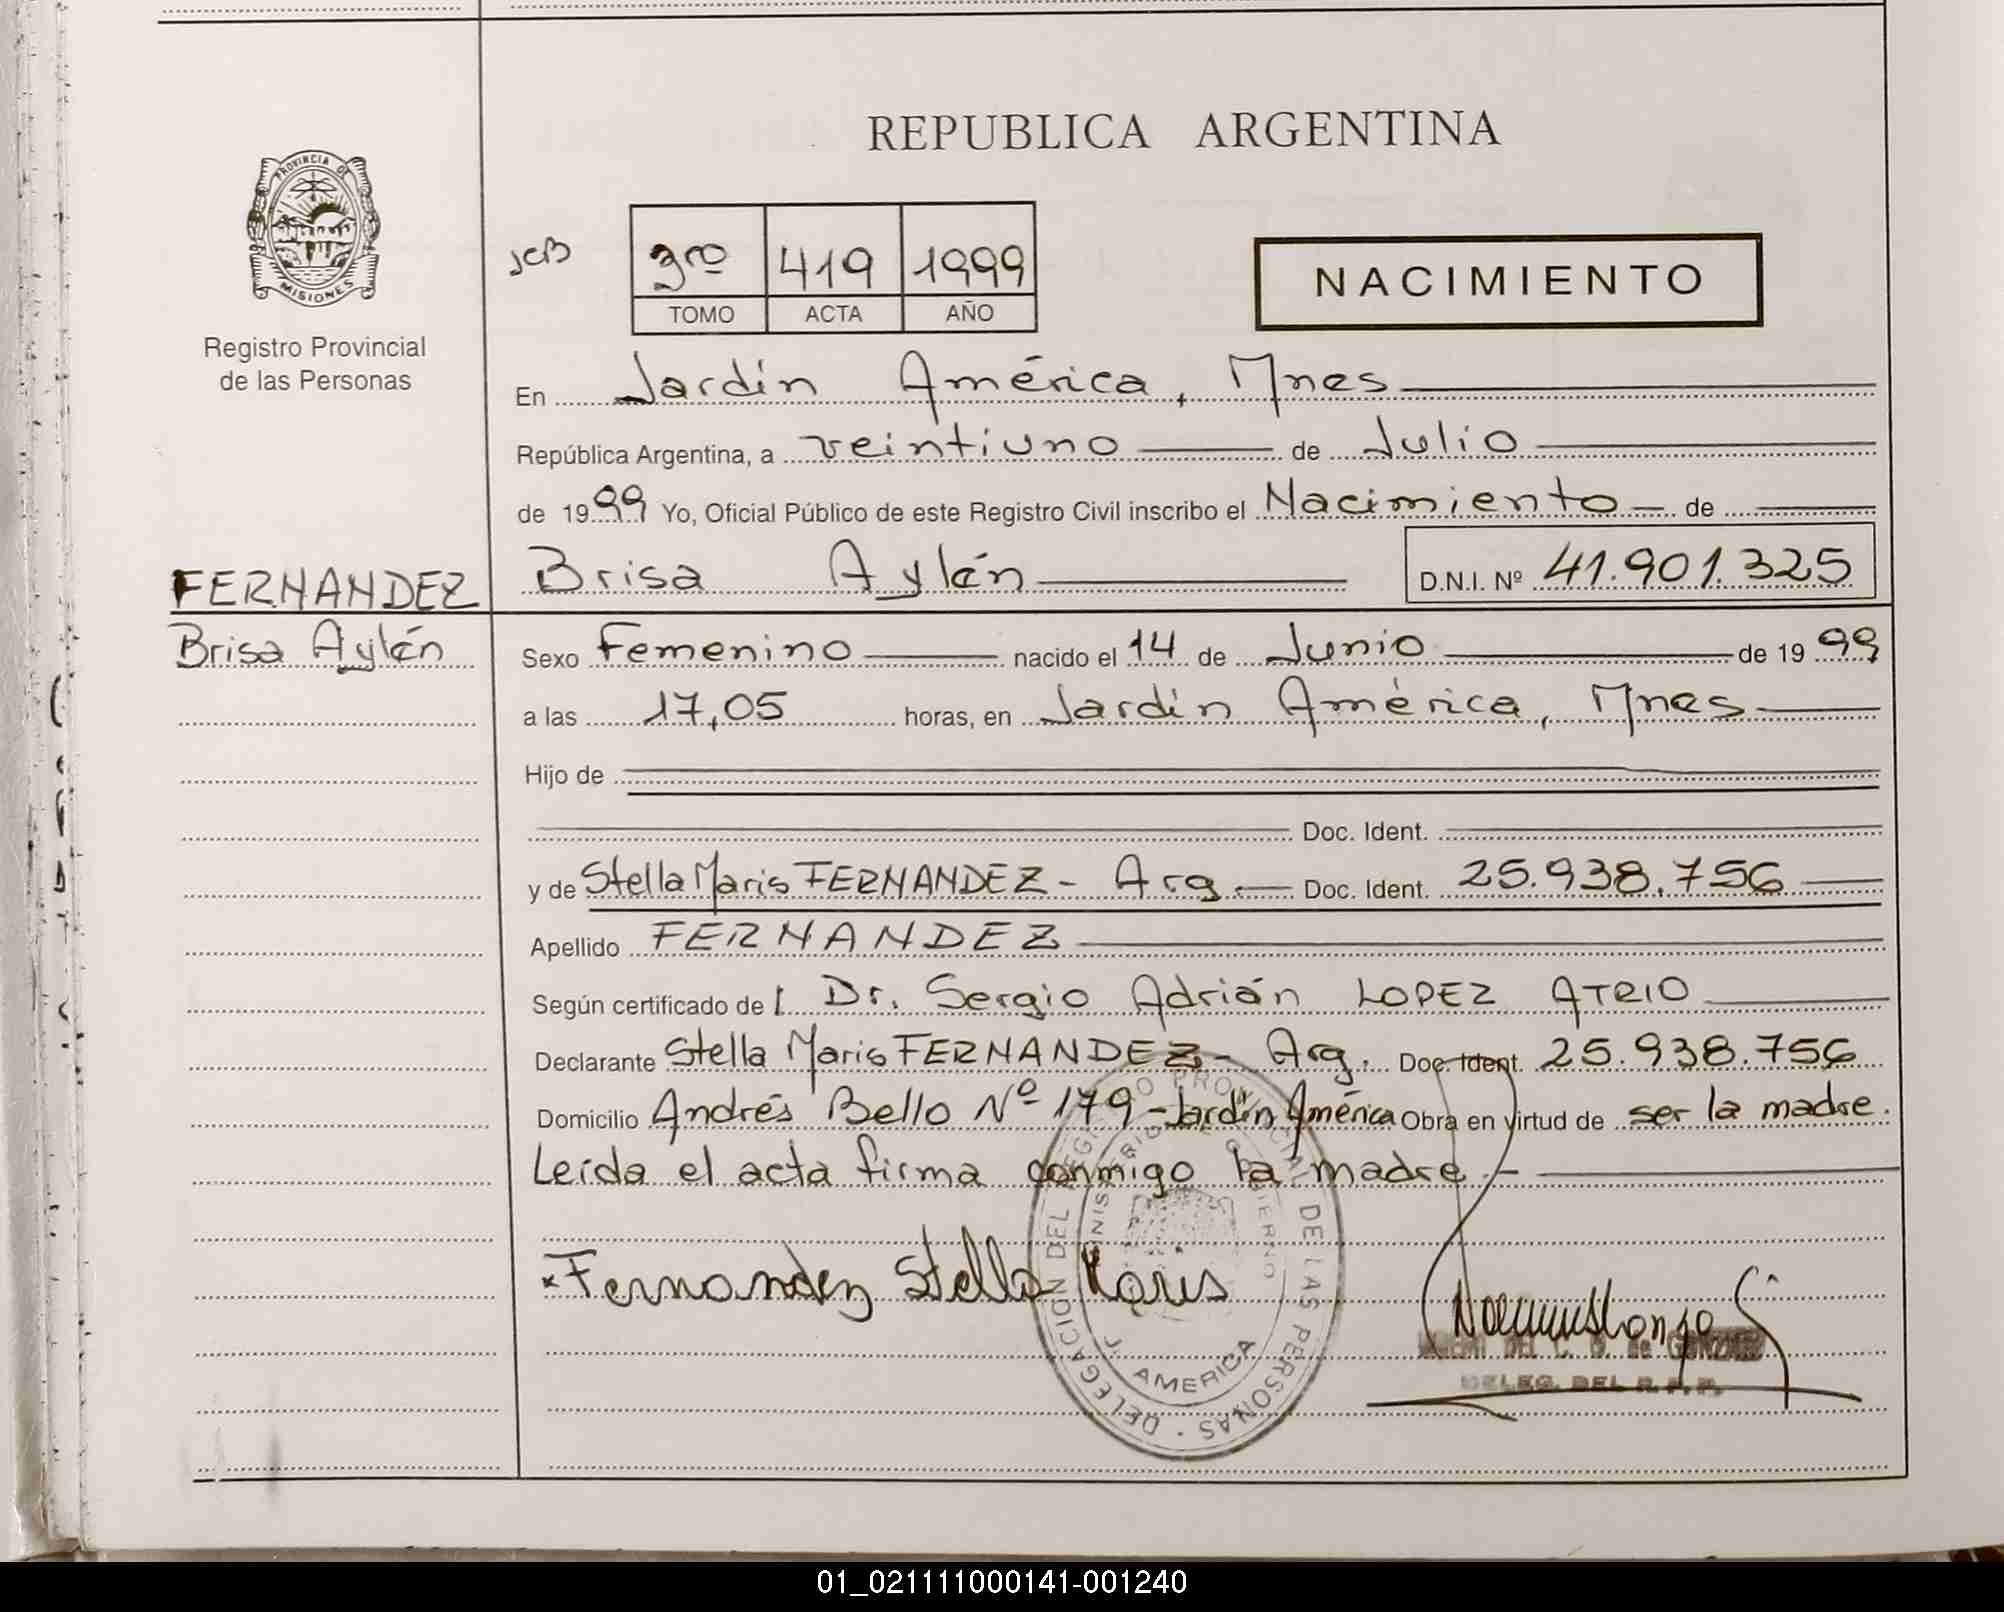 REPUBLICA ARGENTINA
PROVINCIA DE
MISIONES
Registro Provincial
de las Personas
JCB
3ro 419 1999
TOMO ACTA AÑO
NACIMIENTO
En Jardín América, Mnes
República Argentina, a veintiuno de Julio
de 1999 Yo, Oficial Público de este Registro Civil inscribo el Nacimiento de
FERNANDEZ Brisa Aylén D.N.I. Nº 41.901.325
Brisa Aylén Sexo Femenino nacido el 14 de Junio de 1999
a las 17,05 horas, en Jardín América, Mnes
Hijo de
Doc. Ident.
y de Stella Maris FERNANDEZ - Arg. Doc. Ident. 25.938.756
Apellido FERNANDEZ
Según certificado de l Dr. Sergio Adrián LOPEZ ATRIO
Declarante Stella Maris FERNANDEZ - Arg. Doc. Ident. 25.938.756
Domicilio Andrés Bello Nº 179 - Jardín América Obra en virtud de ser la madre.
Leída el acta firma conmigo la madre.-
x Fernandez Stella Maris
DELEGACION DEL REGISTRO PROVINCIAL DE LAS PERSONAS
MINISTERIO DE GOBIERNO
J. AMERICA
DEL C. G. de GONZALEZ
DELEG. DEL R. P. P.
01_021111000141-001240